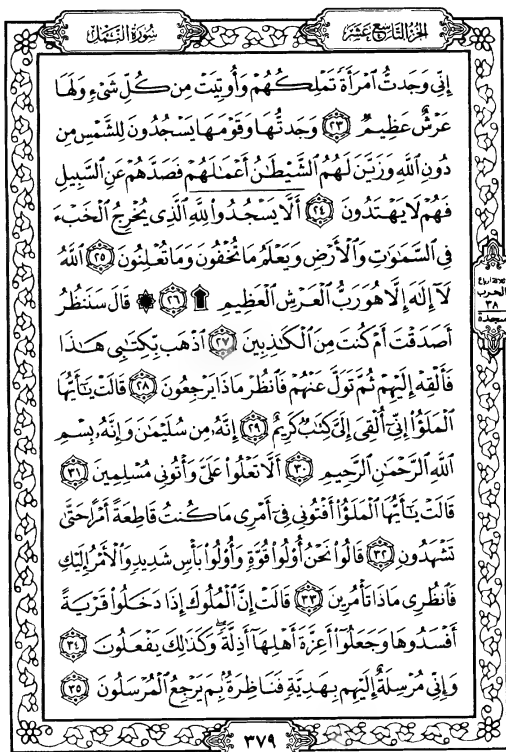 سُورَةُ النَّمْلِ
الجُزْءُ التَّاسِعَ عَشَرَ
إِنِّي وَجَدتُّ ٱمْرَأَةً تَمْلِكُهُمْ وَأُوتِيَتْ مِن كُلِّ شَىْءٍ وَلَهَا
عَرْشٌ عَظِيمٌ ٢٣ وَجَدتُّهَا وَقَوْمَهَا يَسْجُدُونَ لِلشَّمْسِ مِن
دُونِ ٱللَّهِ وَزَيَّنَ لَهُمُ ٱلشَّيْطَٰنُ أَعْمَٰلَهُمْ فَصَدَّهُمْ عَنِ ٱلسَّبِيلِ
فَهُمْ لَا يَهْتَدُونَ ٢٤ أَلَّا يَسْجُدُوا۟ لِلَّهِ ٱلَّذِى يُخْرِجُ ٱلْخَبْءَ
فِى ٱلسَّمَٰوَٰتِ وَٱلْأَرْضِ وَيَعْلَمُ مَا تُخْفُونَ وَمَا تُعْلِنُونَ ٢٥ ٱللَّهُ
لَآ إِلَٰهَ إِلَّا هُوَ رَبُّ ٱلْعَرْشِ ٱلْعَظِيمِ ۩ ٢٦ ۞ قَالَ سَنَنظُرُ
أَصَدَقْتَ أَمْ كُنتَ مِنَ ٱلْكَٰذِبِينَ ٢٧ ٱذْهَب بِّكِتَٰبِى هَٰذَا
فَأَلْقِهْ إِلَيْهِمْ ثُمَّ تَوَلَّ عَنْهُمْ فَٱنظُرْ مَاذَا يَرْجِعُونَ ٢٨ قَالَتْ يَٰٓأَيُّهَا
ٱلْمَلَؤُا۟ إِنِّىٓ أُلْقِىَ إِلَىَّ كِتَٰبٌ كَرِيمٌ ٢٩ إِنَّهُۥ مِن سُلَيْمَٰنَ وَإِنَّهُۥ بِسْمِ
ٱللَّهِ ٱلرَّحْمَٰنِ ٱلرَّحِيمِ ٣٠ أَلَّا تَعْلُوا۟ عَلَىَّ وَأْتُونِى مُسْلِمِينَ ٣١
قَالَتْ يَٰٓأَيُّهَا ٱلْمَلَؤُا۟ أَفْتُونِى فِىٓ أَمْرِى مَا كُنتُ قَاطِعَةً أَمْرًا حَتَّىٰ
تَشْهَدُونِ ٣٢ قَالُوا۟ نَحْنُ أُو۟لُوا۟ قُوَّةٍ وَأُو۟لُوا۟ بَأْسٍ شَدِيدٍ وَٱلْأَمْرُ إِلَيْكِ
فَٱنظُرِى مَاذَا تَأْمُرِينَ ٣٣ قَالَتْ إِنَّ ٱلْمُلُوكَ إِذَا دَخَلُوا۟ قَرْيَةً
أَفْسَدُوهَا وَجَعَلُوٓا۟ أَعِزَّةَ أَهْلِهَآ أَذِلَّةً ۖ وَكَذَٰلِكَ يَفْعَلُونَ ٣٤
وَإِنِّى مُرْسِلَةٌ إِلَيْهِم بِهَدِيَّةٍ فَنَاظِرَةٌۢ بِمَ يَرْجِعُ ٱلْمُرْسَلُونَ ٣٥
الحزب
٣٨
سجدة
٣٧٩